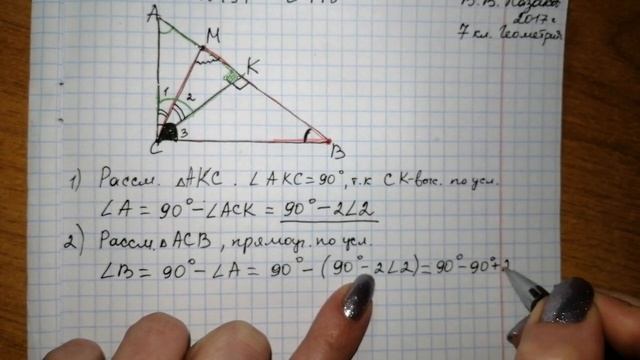 В.В. Казаков
2017г.
7 кл. Геометрия
A
M
K
1
2
3
C
B
1) Рассм. △AKC. ∠AKC = 90°, т.к CK-выс. по усл.
∠A = 90° - ∠ACK = 90° - 2∠2
2) Рассм. △ACB, прямоуг. по усл.
∠B = 90° - ∠A = 90° - (90° - 2∠2) = 90° - 90° + 2